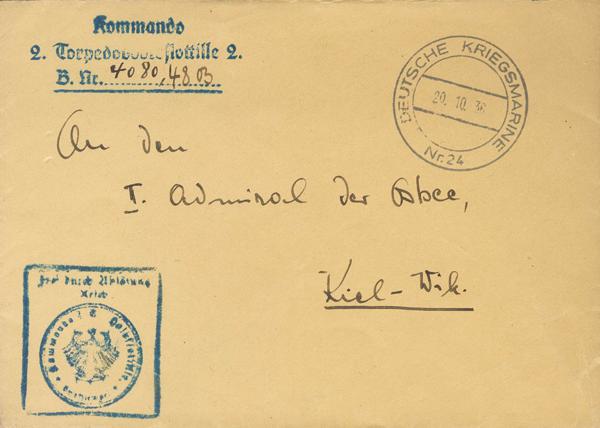 Kommando
2. Torpedobootsflottille 2.
B. Nr. 4080/48B
DEUTSCHE KRIEGSMARINE
20. 10. 36
Nr. 24
An den
I. Admiral der Ostsee,
Kiel-Wik.
Frei durch Ablösung
Reich
Kommando